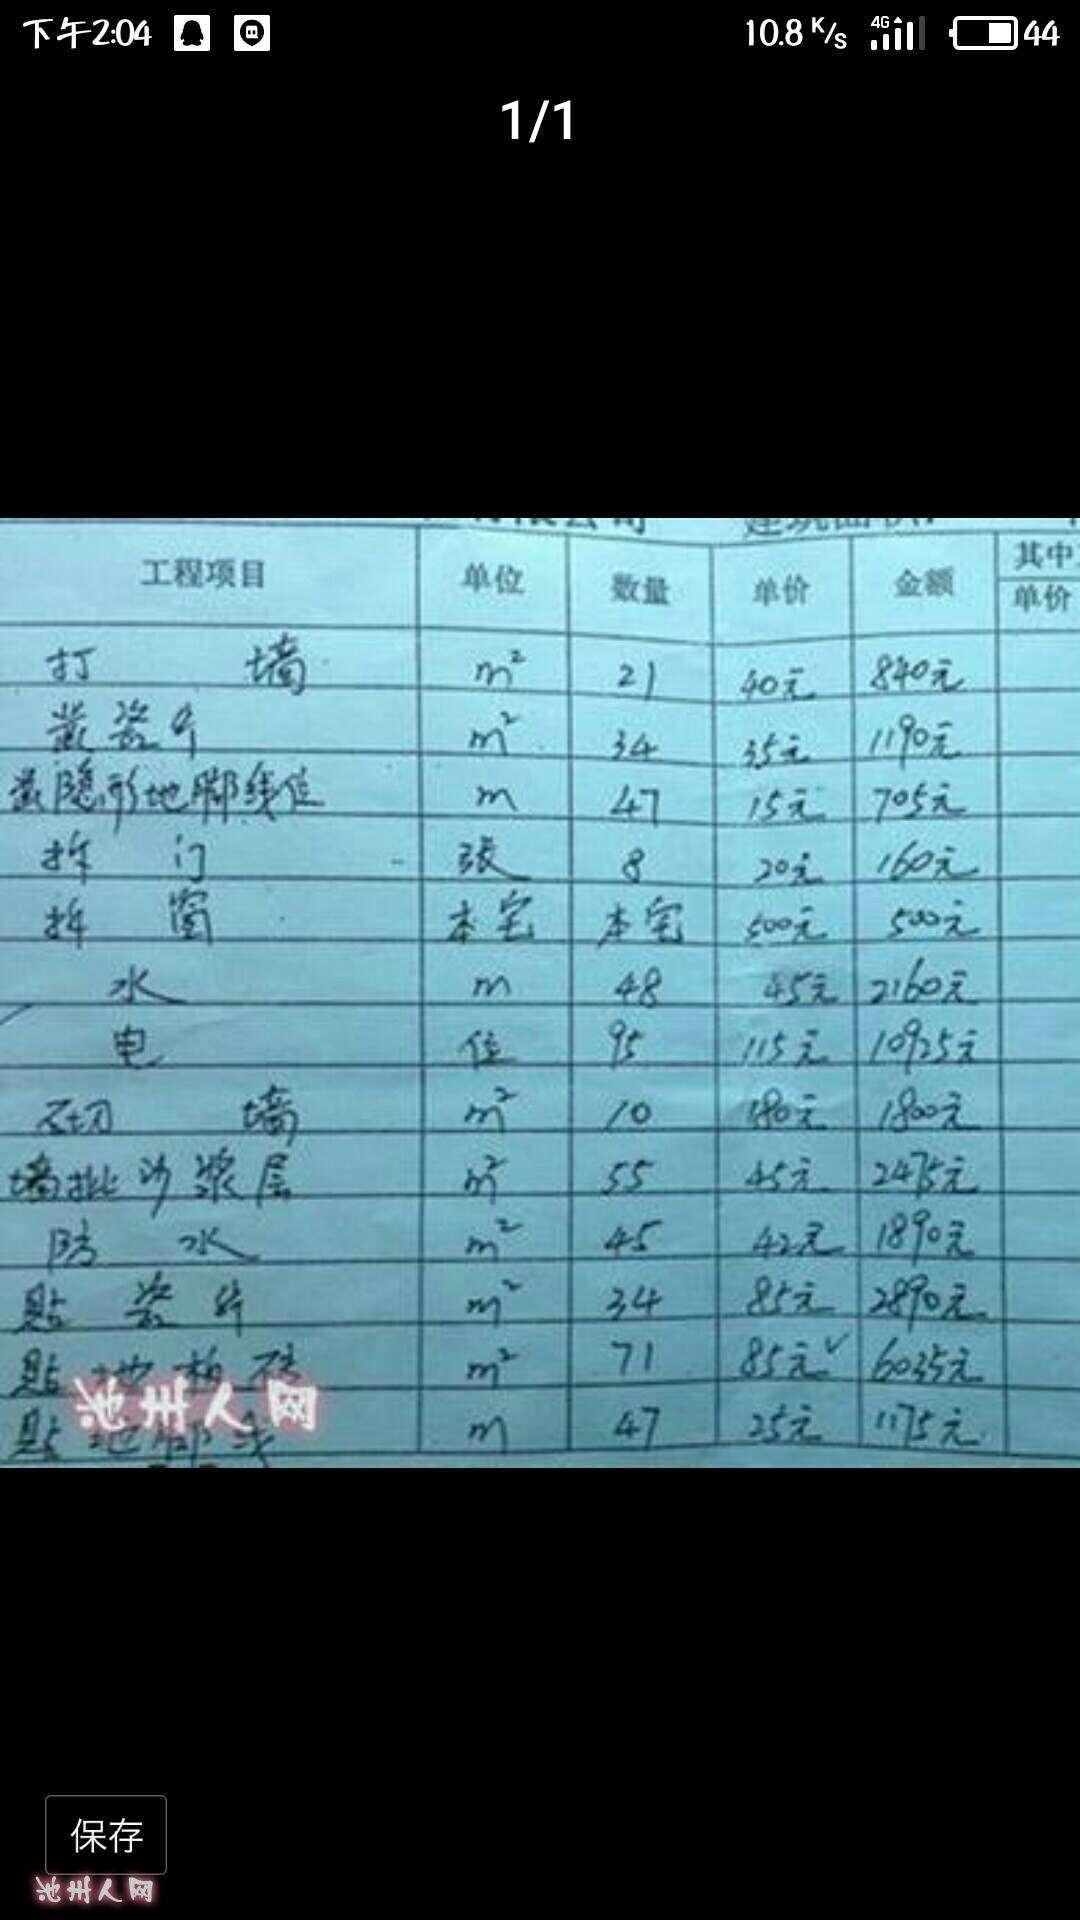 下午2:04 10.8 K/s 4G 44
1/1
工程项目 单位 数量 单价 金额 其中
单价
打 墙 m² 21 40元 840元
凿瓷片 m² 34 35元 1190元
凿隐形地脚线位 m 47 15元 705元
拆 门 张 8 20元 160元
拆 窗 本宅 本宅 500元 500元
水 m 48 45元 2160元
电 位 95 115元 10925元
砌 墙 m² 10 180元 1800元
墙批沙浆层 m² 55 45元 2475元
防 水 m² 45 42元 1890元
贴 瓷 片 m² 34 85元 2890元
贴 地 砖 m² 71 85元✓ 6035元
池州人网
贴 地脚线 m 47 25元 1175元
保存
池州人网